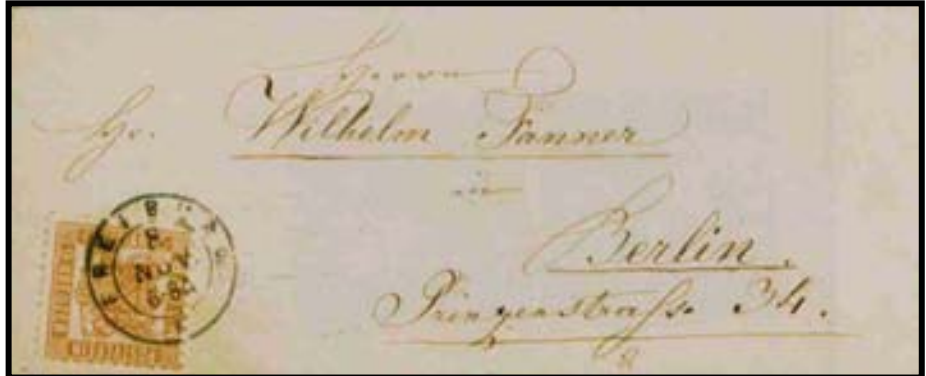 Herrn
Wilhelm Fanner
in
Berlin.
Prinzenstraße 34.
FREIBURG
8
NOV